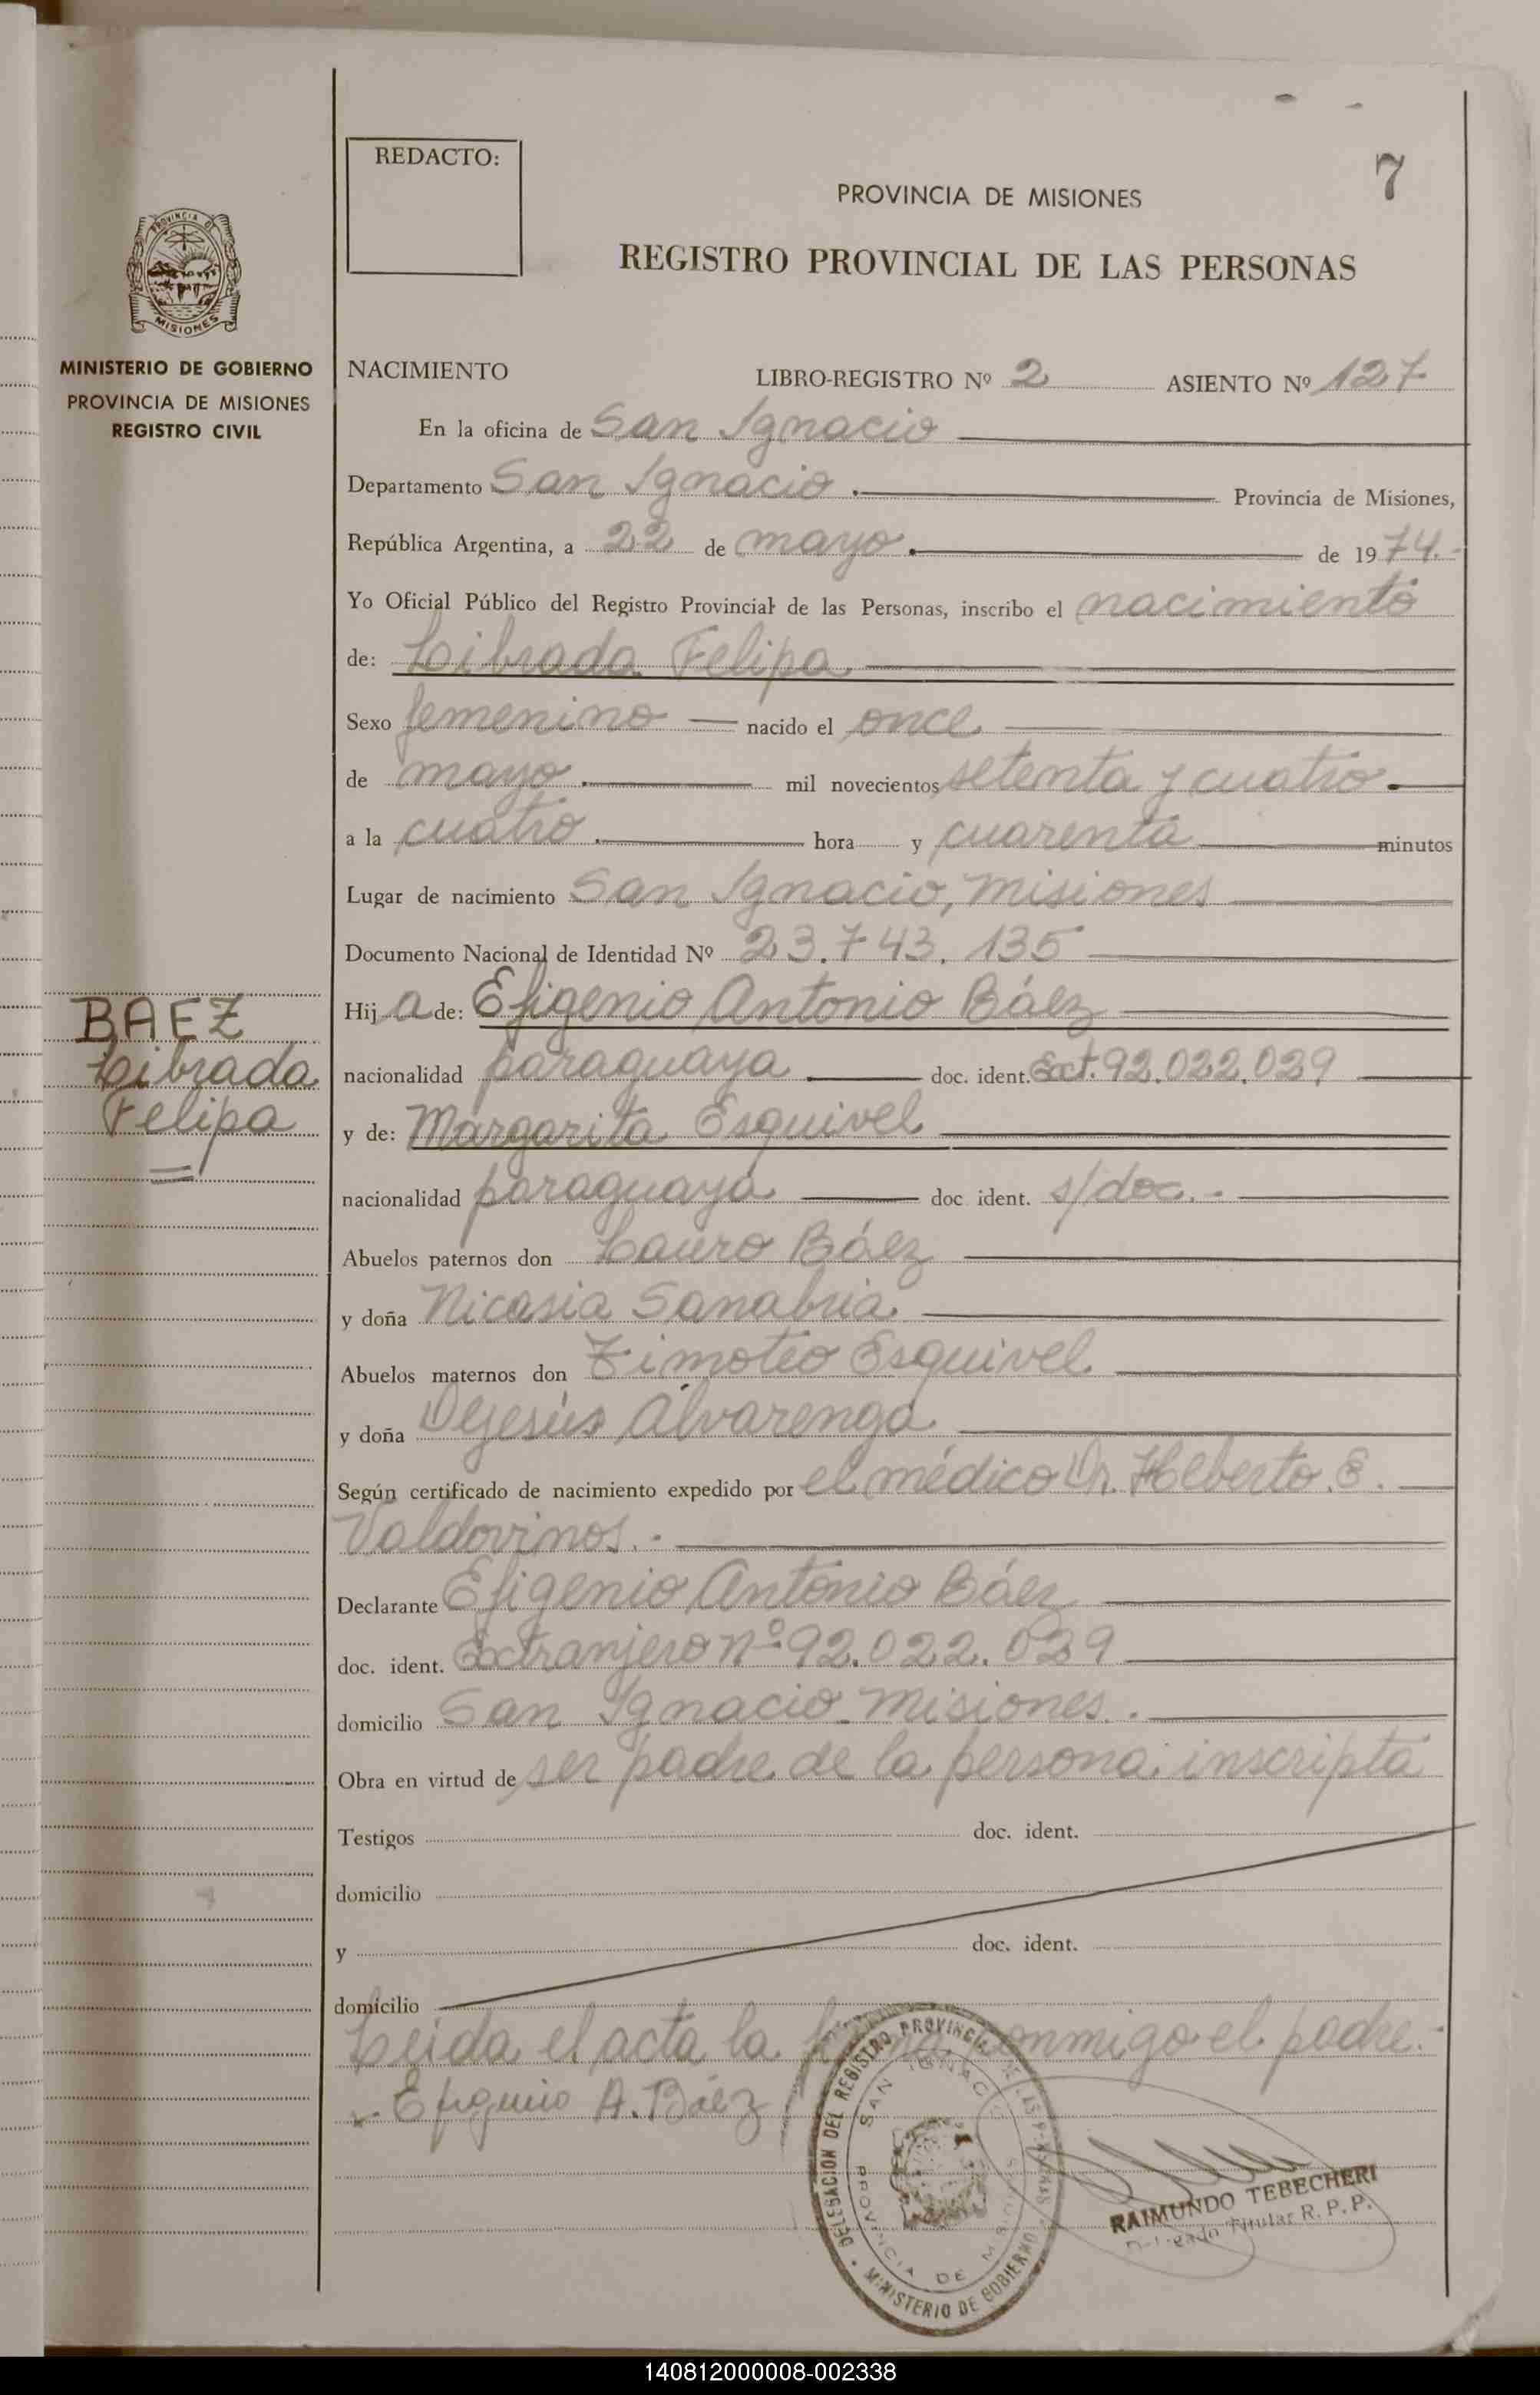 7
REDACTO:
PROVINCIA DE MISIONES
REGISTRO PROVINCIAL DE LAS PERSONAS
PROVINCIA DE
MISIONES
MINISTERIO DE GOBIERNO
PROVINCIA DE MISIONES
REGISTRO CIVIL
NACIMIENTO LIBRO-REGISTRO Nº 2 ASIENTO Nº 127
En la oficina de San Ignacio
Departamento San Ignacio. Provincia de Misiones,
República Argentina, a 22 de mayo. de 1974.-
Yo Oficial Público del Registro Provincial de las Personas, inscribo el nacimiento
de: Librada Felipa
Sexo femenino nacido el once
de mayo. mil novecientos setenta y cuatro.
a la cuatro. hora y cuarenta minutos
Lugar de nacimiento San Ignacio, Misiones
Documento Nacional de Identidad Nº 23.743.135
BAEZ
Librada
Felipa
Hij a de: Efigenio Antonio Báez
nacionalidad paraguaya doc. ident. Ext. 92.022.029
y de: Margarita Esquivel
nacionalidad paraguaya doc ident. s/doc. -
Abuelos paternos don Lauro Báez
y doña Nicasia Sanabria.
Abuelos maternos don Timoteo Esquivel
y doña Dejesús Alvarenga
Según certificado de nacimiento expedido por el médico Dr. Helberto E.
Valdovinos. -
Declarante Efigenio Antonio Báez
doc. ident. Extranjero nº 92.022.039
domicilio San Ignacio - Misiones.
Obra en virtud de ser padre de la persona inscripta
Testigos doc. ident.
domicilio
y doc. ident.
domicilio
Leida el acta la conmigo el padre.-
Efigenio A. Báez
DELEGACION DEL REGISTRO PROVINCIAL DE LAS PERSONAS
SAN IGNACIO
PROVINCIA DE MISIONES
MINISTERIO DE GOBIERNO
RAIMUNDO TEBECHERI
Delegado Titular R. P. P.
140812000008-002338